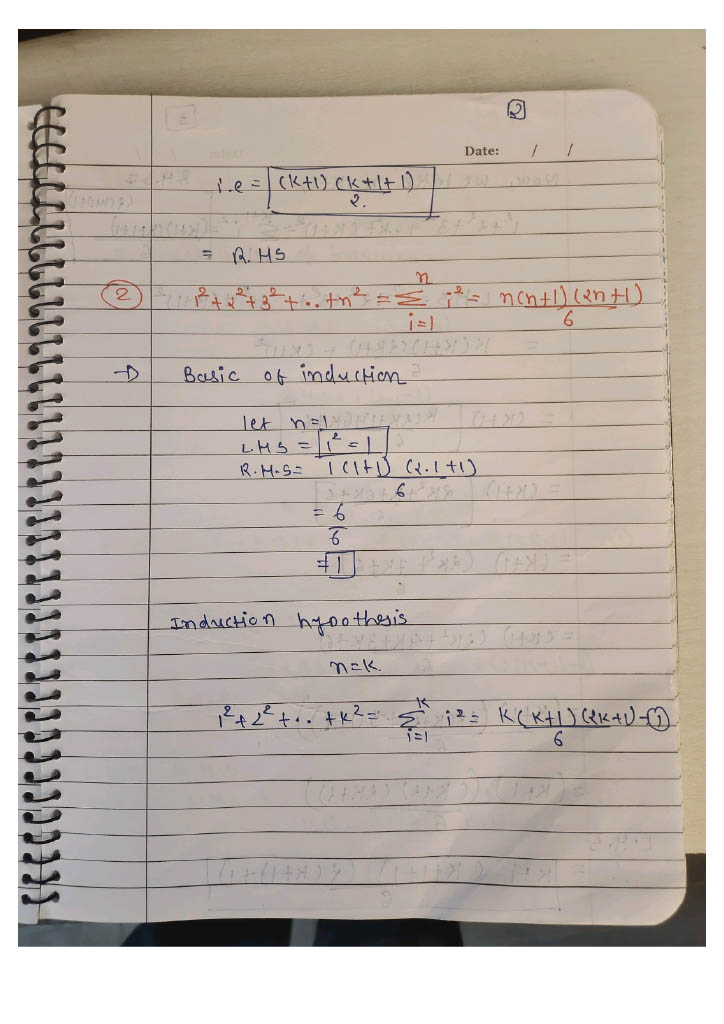 2
Date: / /
i.e = (k+1) (k+1+1)
2.
= R.HS
2 1² + 2² + 3² + .. + n² = n Σ i=1 i² = n(n+1) (2n+1)
6
→ Basic of induction
let n=1
L.HS = 1² = 1
R.H.S = 1 (1+1) (2.1+1)
6
= 6
6
= 1
Induction hypothesis
n=k.
1² + 2² + .. + k² = k Σ i=1 i² = k(k+1) (2k+1) - 1
6